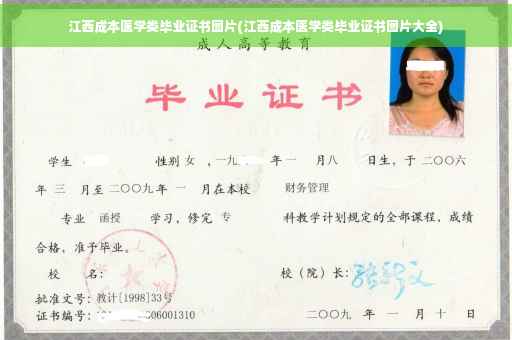 江西成本医学类毕业证书图片(江西成本医学类毕业证书图片大全)
成人高等教育
毕业证书
学生 性别 女 ,一九 年 一 月八 日生，于 二〇〇六
年 三 月至 二〇〇九 年 一 月在本校 财务管理
专业 函授 学习，修完 专 科教学计划规定的全部课程，成绩
合格，准予毕业。
校 名： 校（院）长：
批准文号：教计[1998]33号
证书编号： 06001310 二〇〇九 年 一 月 十 日